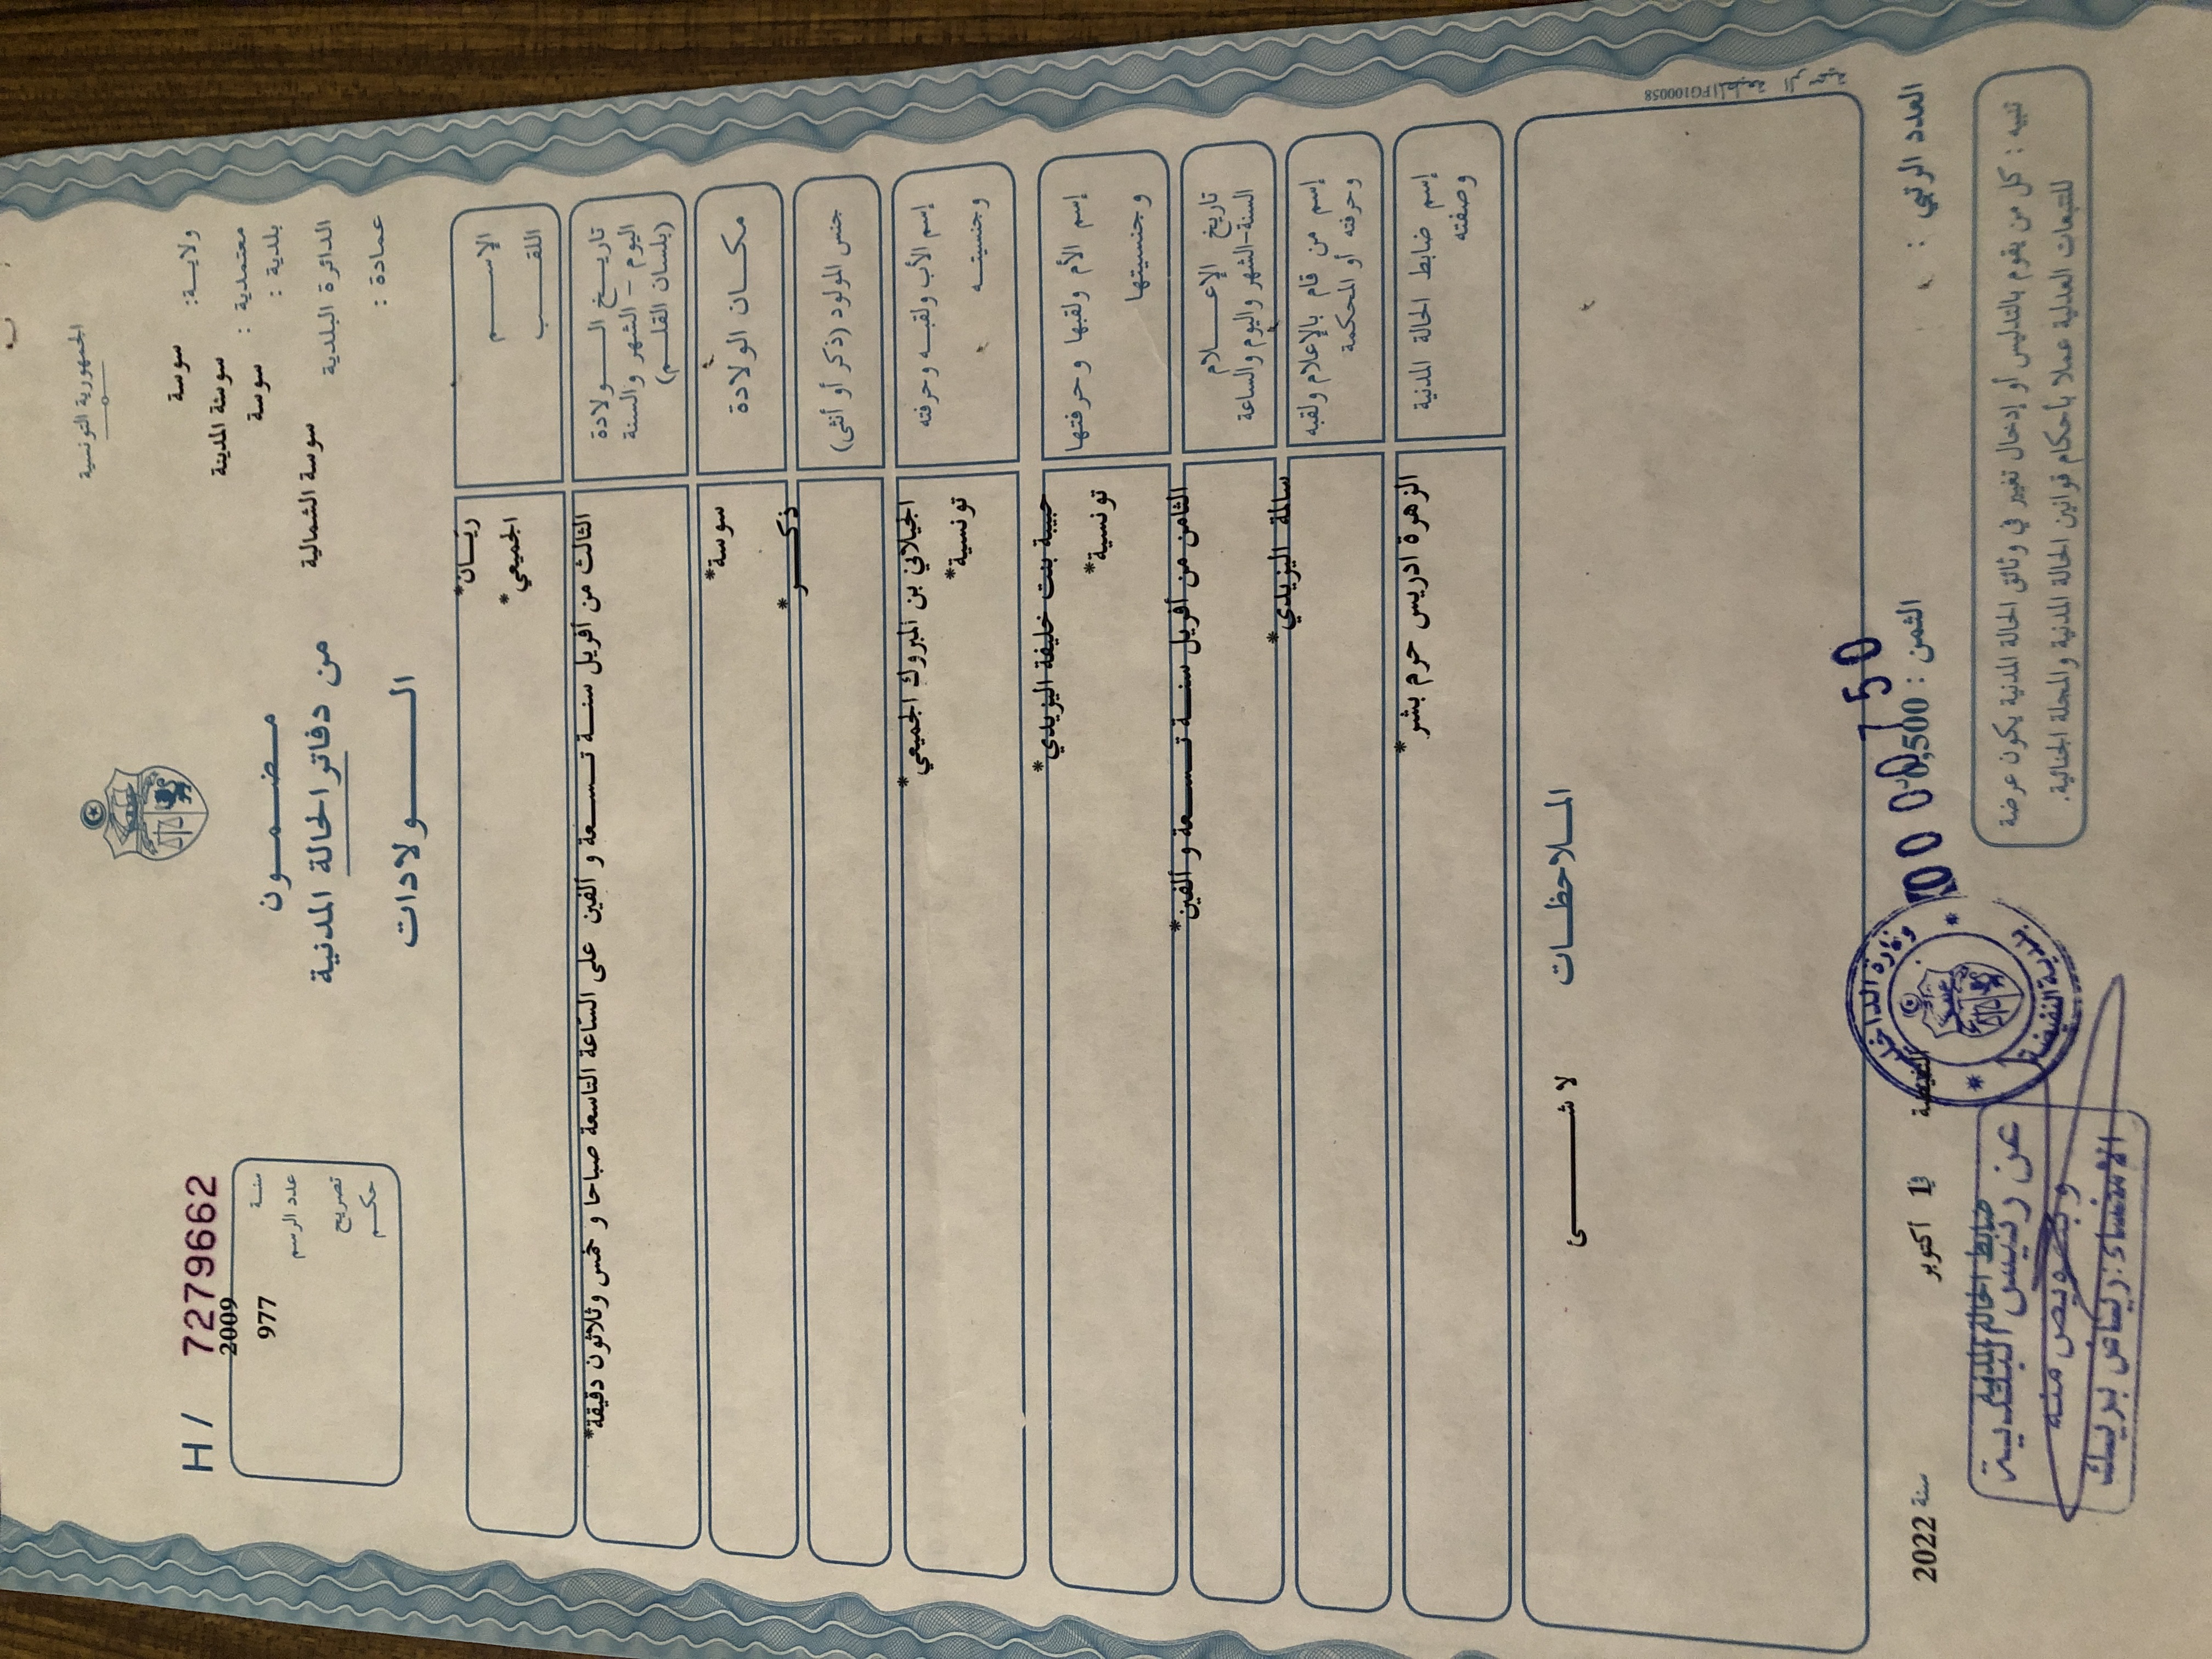 الجمهورية التونسية
ولاية: سوسة
معتمدية : سوسة المدينة
بلدية : سوسة
الدائرة البلدية سوسة الشمالية
عمادة :
مضمون
من دفاتر الحالة المدنية
الولادات
H / 7279662
سنة 2009
عدد الرسم 977
تصريح
حكم
الإسم ريان*
اللقب الجميعي*
تاريخ الولادة
اليوم - الشهر والسنة
(بلسان القلم)
الثالث من افريل سنة تسعة و الفين على الساعة التاسعة صباحا و خمس وثلاثون دقيقة*
مكان الولادة سوسة*
جنس المولود (ذكر أو أنثى) ذكر*
إسم الأب ولقبه وحرفته الجيلاني بن المبروك الجميعي*
وجنسيته تونسية*
إسم الأم ولقبها وحرفتها حبيبة بنت خليفة اليزيدي*
وجنسيتها تونسية*
تاريخ الإعلام
السنة-الشهر واليوم والساعة
الثامن من أفريل سنة تسعة و الفين*
إسم من قام بالإعلام ولقبه
وحرفته أو المحكمة
سالمة اليزيدي*
إسم ضابط الحالة المدنية
وصفته
الزهرة ادريس حرم بشر*
الملاحظات لا شئ
المطبعة الرسمية PG100058
العدد الرتبي : الثمن : 0,500 750
النفيضة في 1 أكتوبر سنة 2022
وزارة الداخلية
بلدية النفيضة
ضابط الحالة المدنية
عن رئيس البلدية
وبتفويض منه
الامضاء: رياض بريك
تنبيه : كل من يقوم بالتدليس أو إدخال تغيير في وثائق الحالة المدنية يكون عرضة
للتتبعات العدلية عملا بأحكام قوانين الحالة المدنية والمجلة الجنائية.